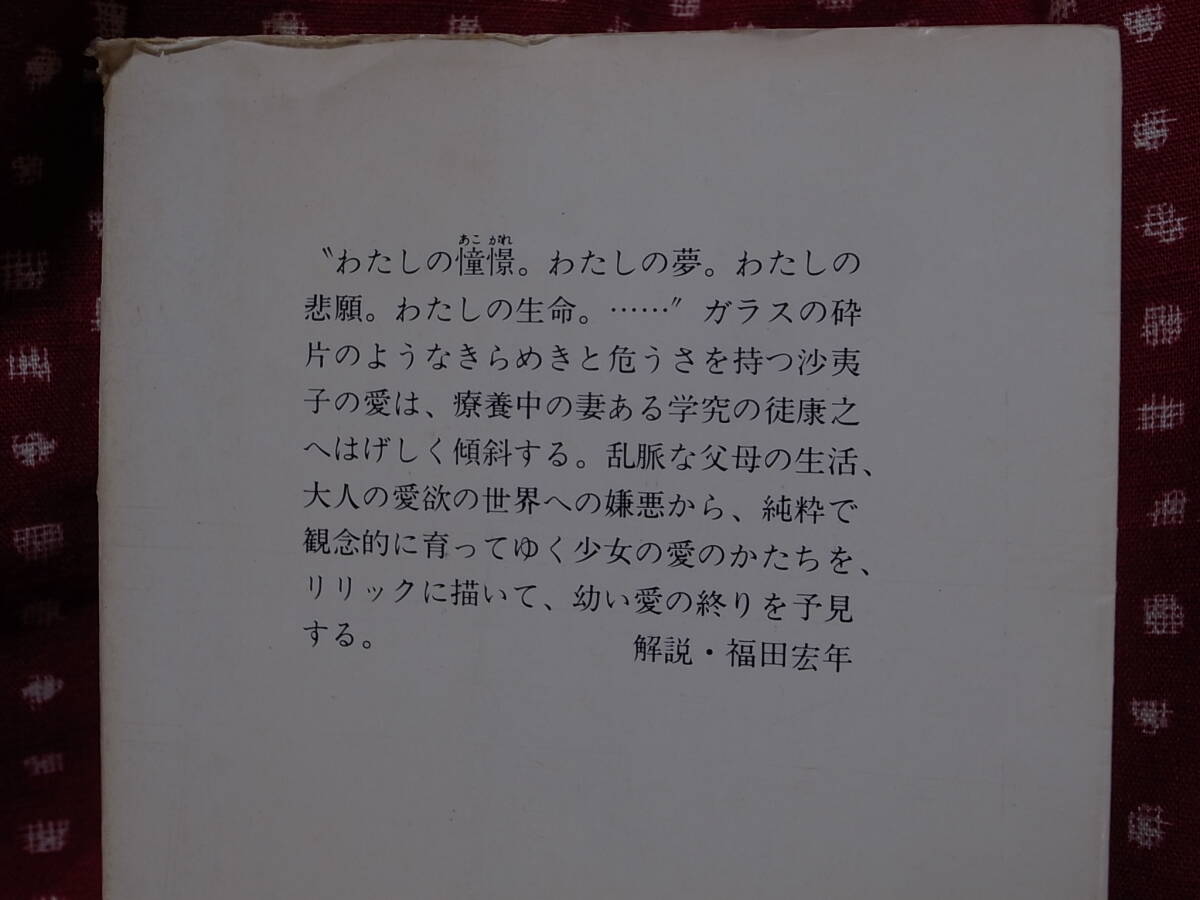 〝わたしの憧憬。わたしの夢。わたしの
悲願。わたしの生命。……〟ガラスの砕
片のようなきらめきと危うさを持つ沙夷
子の愛は、療養中の妻ある学究の徒康之
へはげしく傾斜する。乱脈な父母の生活、
大人の愛欲の世界への嫌悪から、純粋で
観念的に育ってゆく少女の愛のかたちを、
リリックに描いて、幼い愛の終りを予見
する。
解説・福田宏年
あこがれ